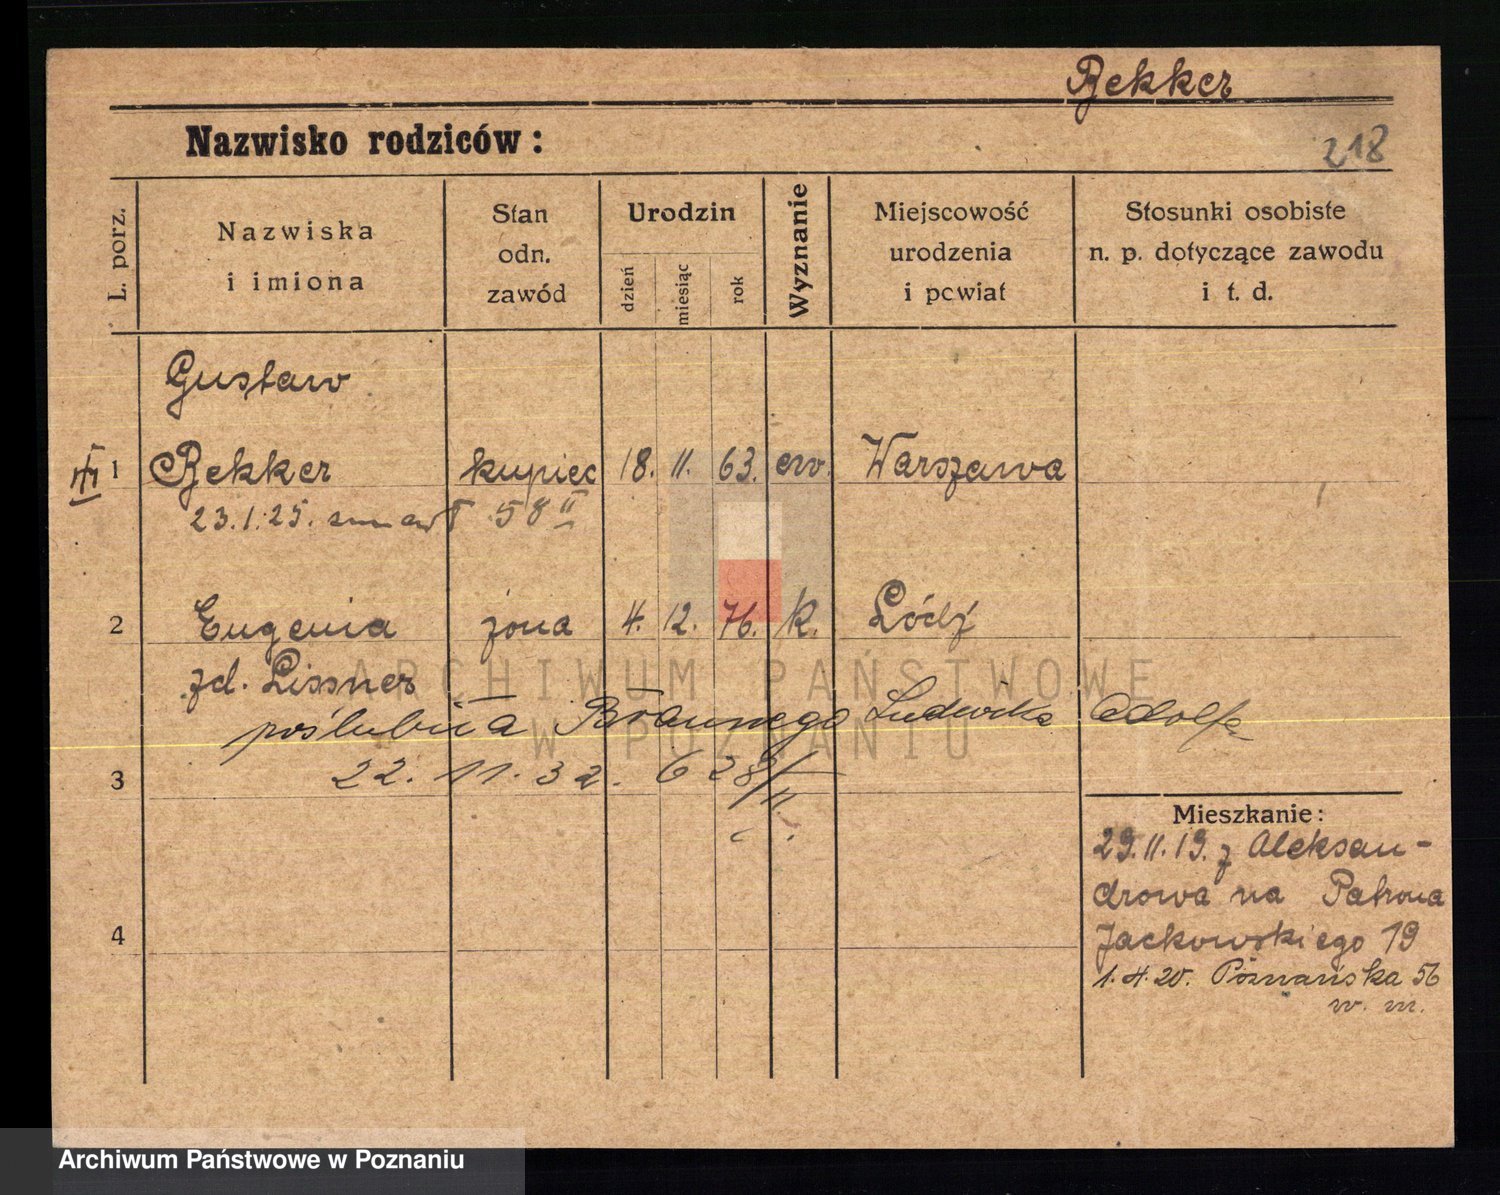 Bekker
Nazwisko rodziców:
218
L. porz.
Nazwiska
i imiona
Stan
odn.
zawód
Urodzin
dzień
miesiąc
rok
Wyznanie
Miejscowość
urodzenia
i powiat
Stosunki osobiste
n. p. dotyczące zawodu
i t. d.
Gustaw
1 Bekker kupiec 18. 11. 63. ew. Warszawa
23.1.25. zmarł 58 II
2 Eugenia żona 4. 12. 76. k. Łódź
zd. Lissner
poślubiła Ludwika Adolfa
3 22. 11. 32. 628/II
4
Mieszkanie:
29.11.19. z Aleksan-
drowa na Patrona
Jackowskiego 19
1.4.20. Poznańska 56
w. m.
ARCHIWUM PAŃSTWOWE
W POZNANIU
Archiwum Państwowe w Poznaniu